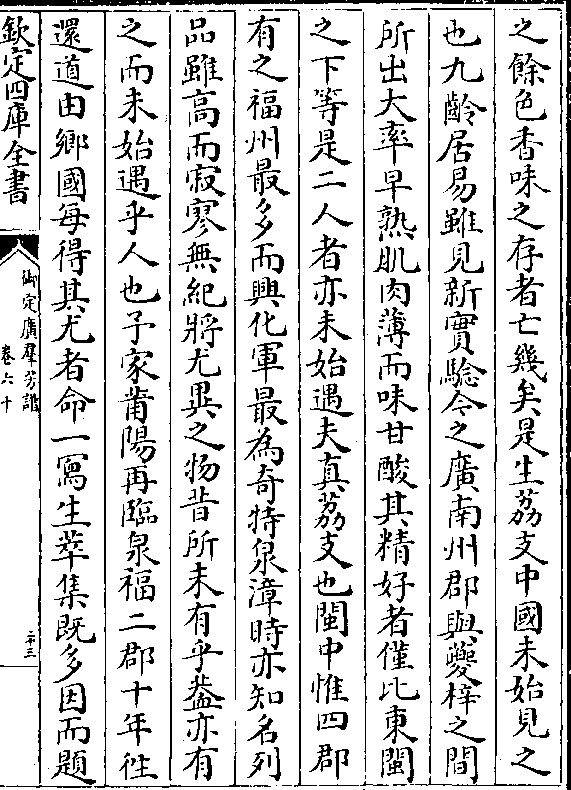 之餘色香味之存者亡幾矣是生荔支中國未始見之
也九齡居易雖見新實驗今之廣南州郡與夔梓之間
所出大率早熟肌肉薄而味甘酸其精好者僅比東閩
之下等是二人者亦未始遇夫真荔支也閩中惟四郡
有之福州最多而興化軍最為奇特泉漳時亦知名列
品雖高而寂寥無紀將尤異之物昔所未有乎蓋亦有
之而未始遇乎人也予家莆陽再臨泉福二郡十年往
還道由鄉國每得其尤者命工寫生萃集既多因而題
欽定四庫全書
御定廣羣芳譜
卷六十
二十三